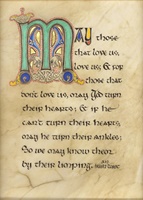 May those
that love us,
love us; & for
those that
don't love us, may God turn
their hearts; & if he
can't turn their hearts,
may he turn their ankles;
So we may know them
by their limping.